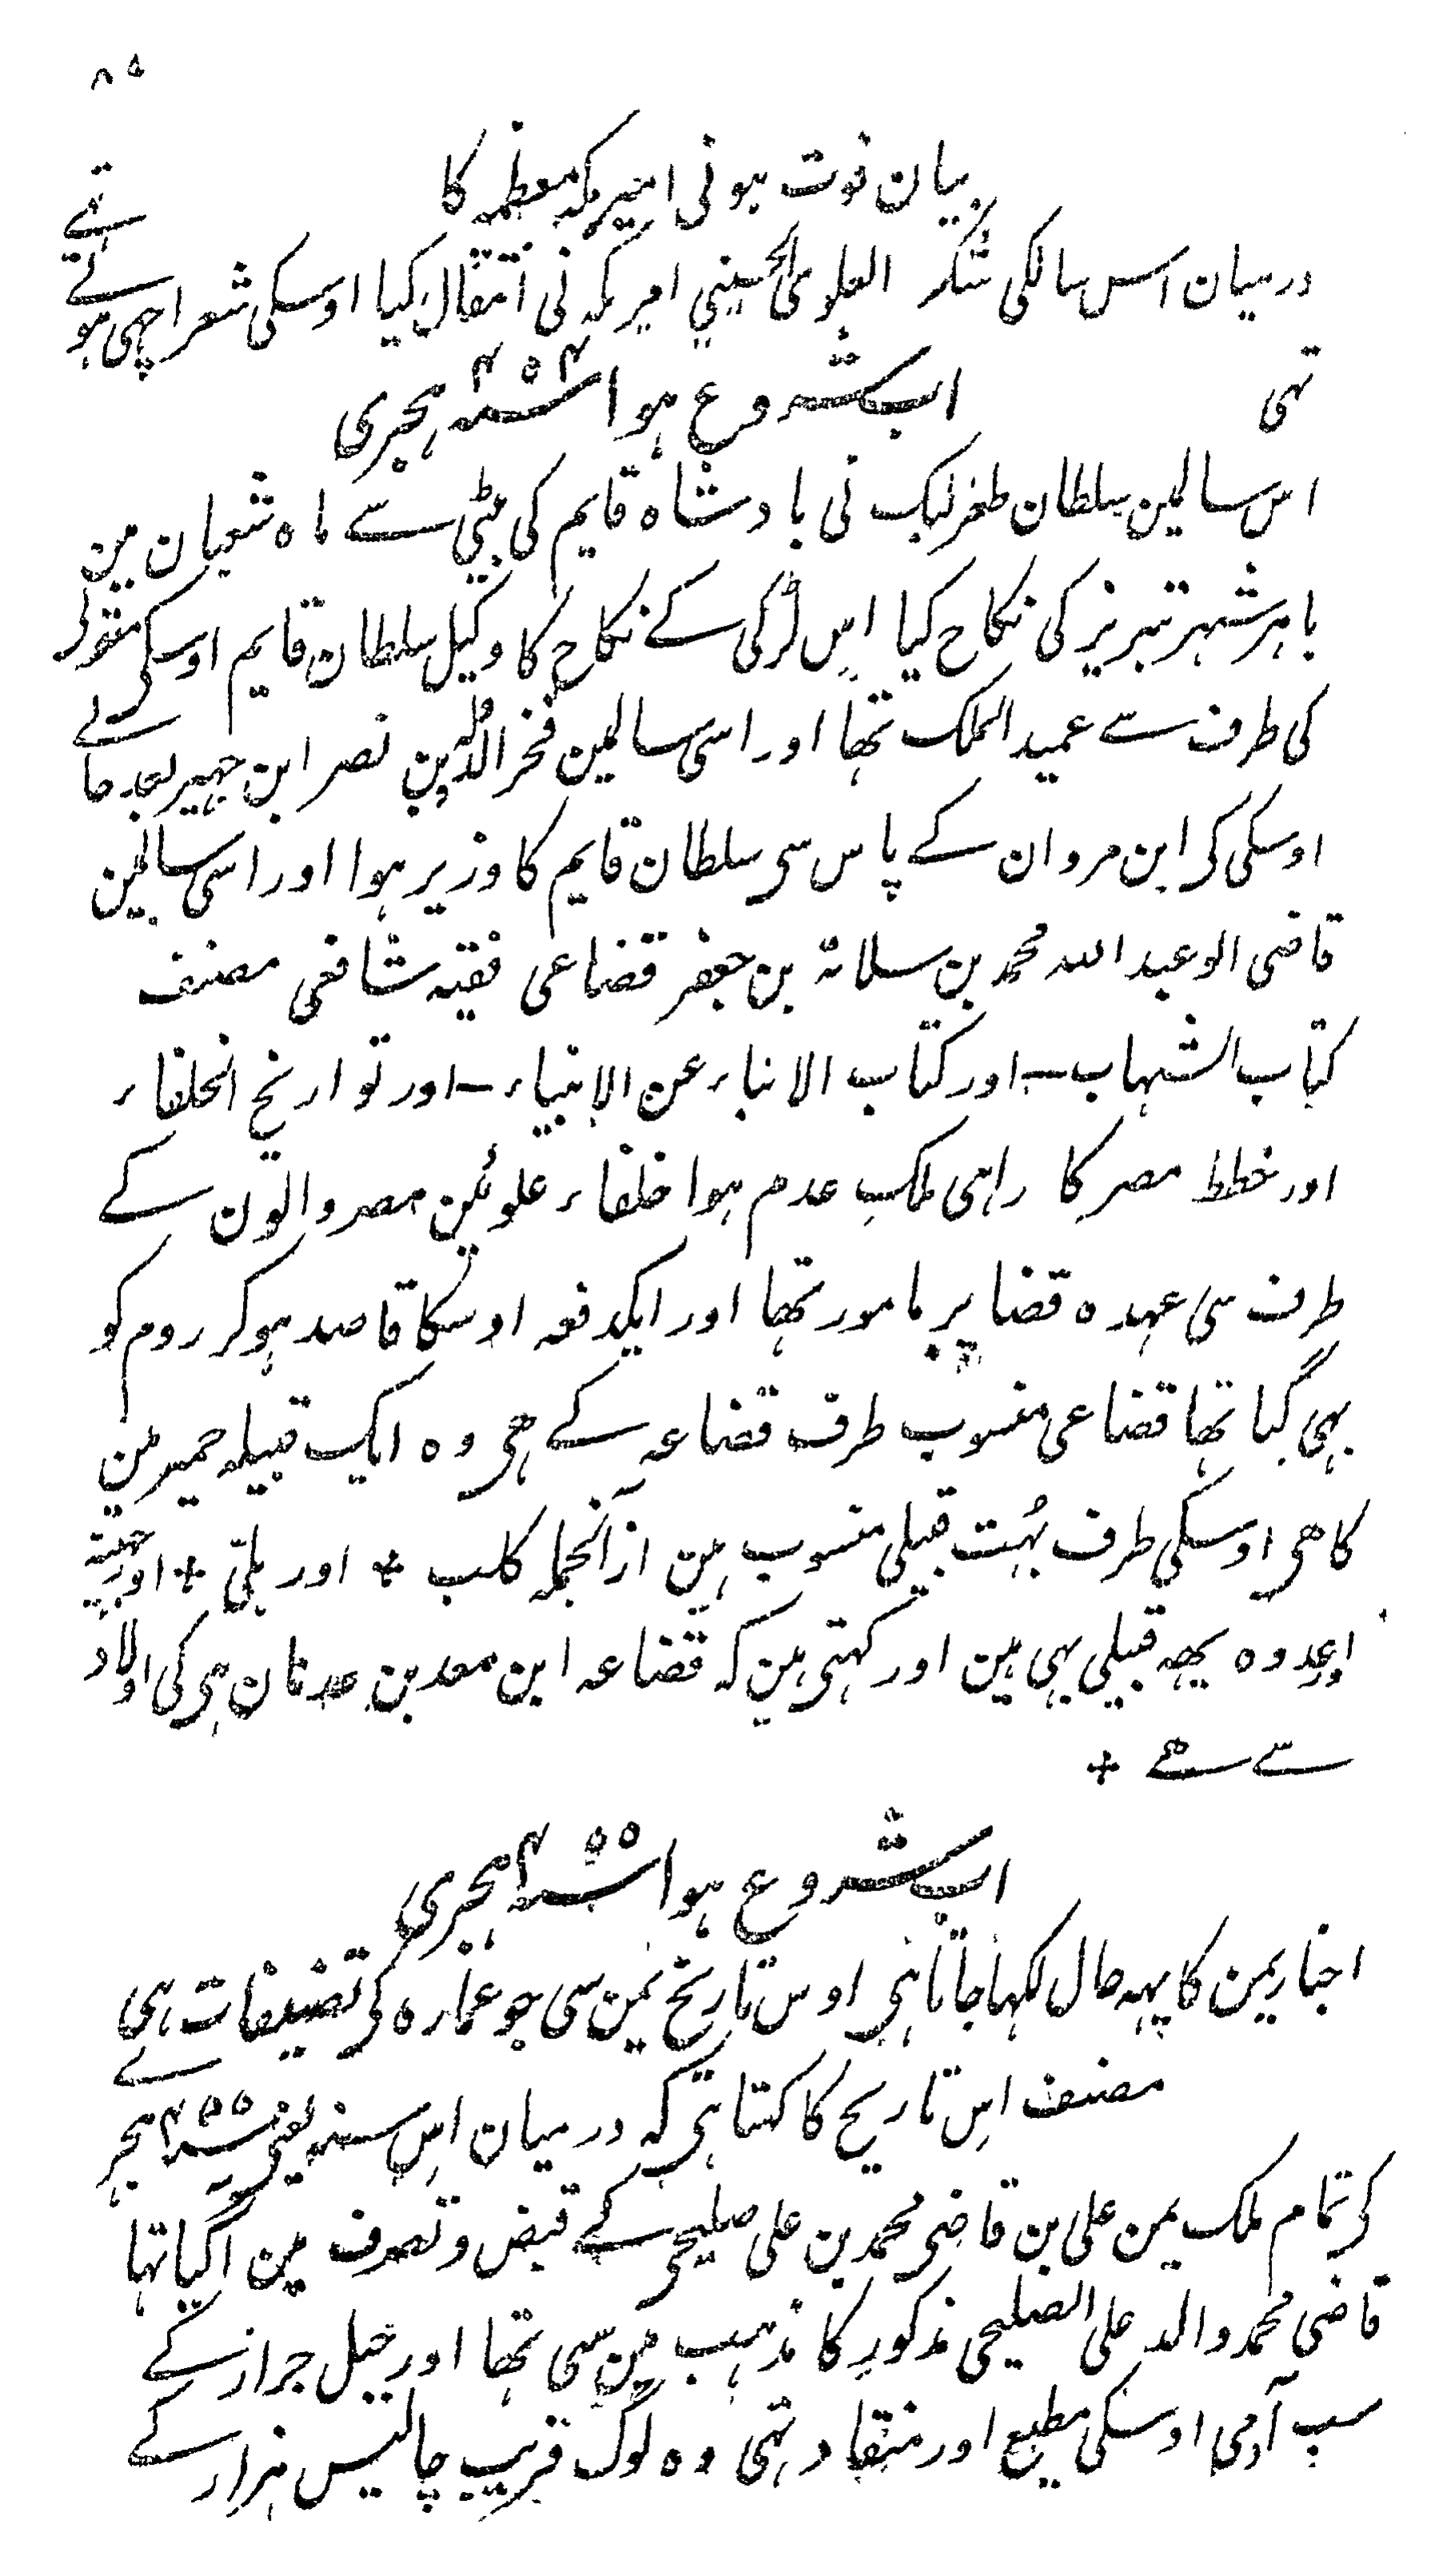 ۸۵
بیان فوت ہونی امیر مکہ معظمہ کا
درمیان اس سالکی شکر العلوی الحسینی امیر مکہ نی انتقال کیا اوسکی شعر اچہی ہوتے تہے
تہی
اب شروع ہوا سنہ ۴۵۴ ہجری
اس سالمین سلطان طغرلبک نی بادشاہ قایم کی بیٹی سے ماہ شعبان مین
باہر شہر تبریز کی نکاح کیا اس لڑکی کے نکاح کا وکیل سلطان قایم اوسکی مقولہ
کی طرف سے عمید الملک تھا اور اسی سالمین فخر الدولہ بن نصر ابن جہیر بعد جانے
اوسکی کی ابن مروان کے پاس سی سلطان قایم کا وزیر ہوا اور اسی سالمین
قاضی ابو عبد اللہ محمد بن سلامۃ بن جعفر قضاعی فقیہ شافعی مصنف
کتاب الشہاب - اور کتاب الانباء عن الانبیاء - اور تواریخ الخلفاء
اور خطط مصر کا راہی ملک عدم ہوا خلفاء علوئین مصر والون کے
طرف سی عہدہ قضا پر مامور تھا اور ایکدفعہ اوسکا قاصد ہوکر روم کو
بہی گیا تھا قضاعی منسوب طرف قضاعہ کے ہی وہ ایک قبیلہ حمیر مین
کا ہی اوسکی طرف بہت قبیلی منسوب ہین ازانجملہ کلب + اور بلی + اور جہینۃ
اور عدوہ یہہ قبیلی بہی ہین اور کہتی ہین کہ قضاعہ ابن معد بن عدنان ہی کی اولاد
سے ہے +
اب شروع ہوا سنہ ۴۵۵ ہجری
اخبار یمن کا یہہ حال لکہا جاتا ہی اوس تاریخ یمن سی جو عمارہ کی تصنیفات ہی
مصنف اس تاریخ کا کہتا ہی کہ درمیان اس سنہ یعنی سنہ ۴۵۵ ہجرے
کی تمام ملک یمن علی بن قاضی محمد بن علی صلیحی کے قبض و تصرف مین آگیا تہا
قاضی محمد والد علی الصلیحی مذکور کا مذہب مین سی تھا اور جبل حراز کے
سب آدمی اوسکی مطیع اور منقاد تہی وہ لوگ قریب چالیس ہزار کے